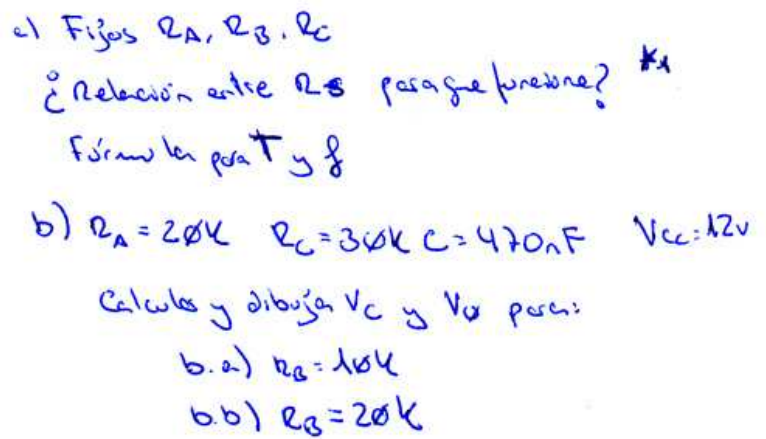 a) Fijos RA, RB, RC
¿Relación entre Rs para que funcione? *1
Fórmula para T y f
b) RA = 20K RC = 30K C = 470nF Vcc = 12v
Calcular y dibujar VC y V0 para:
b.a) RB = 10K
b.b) RB = 20K